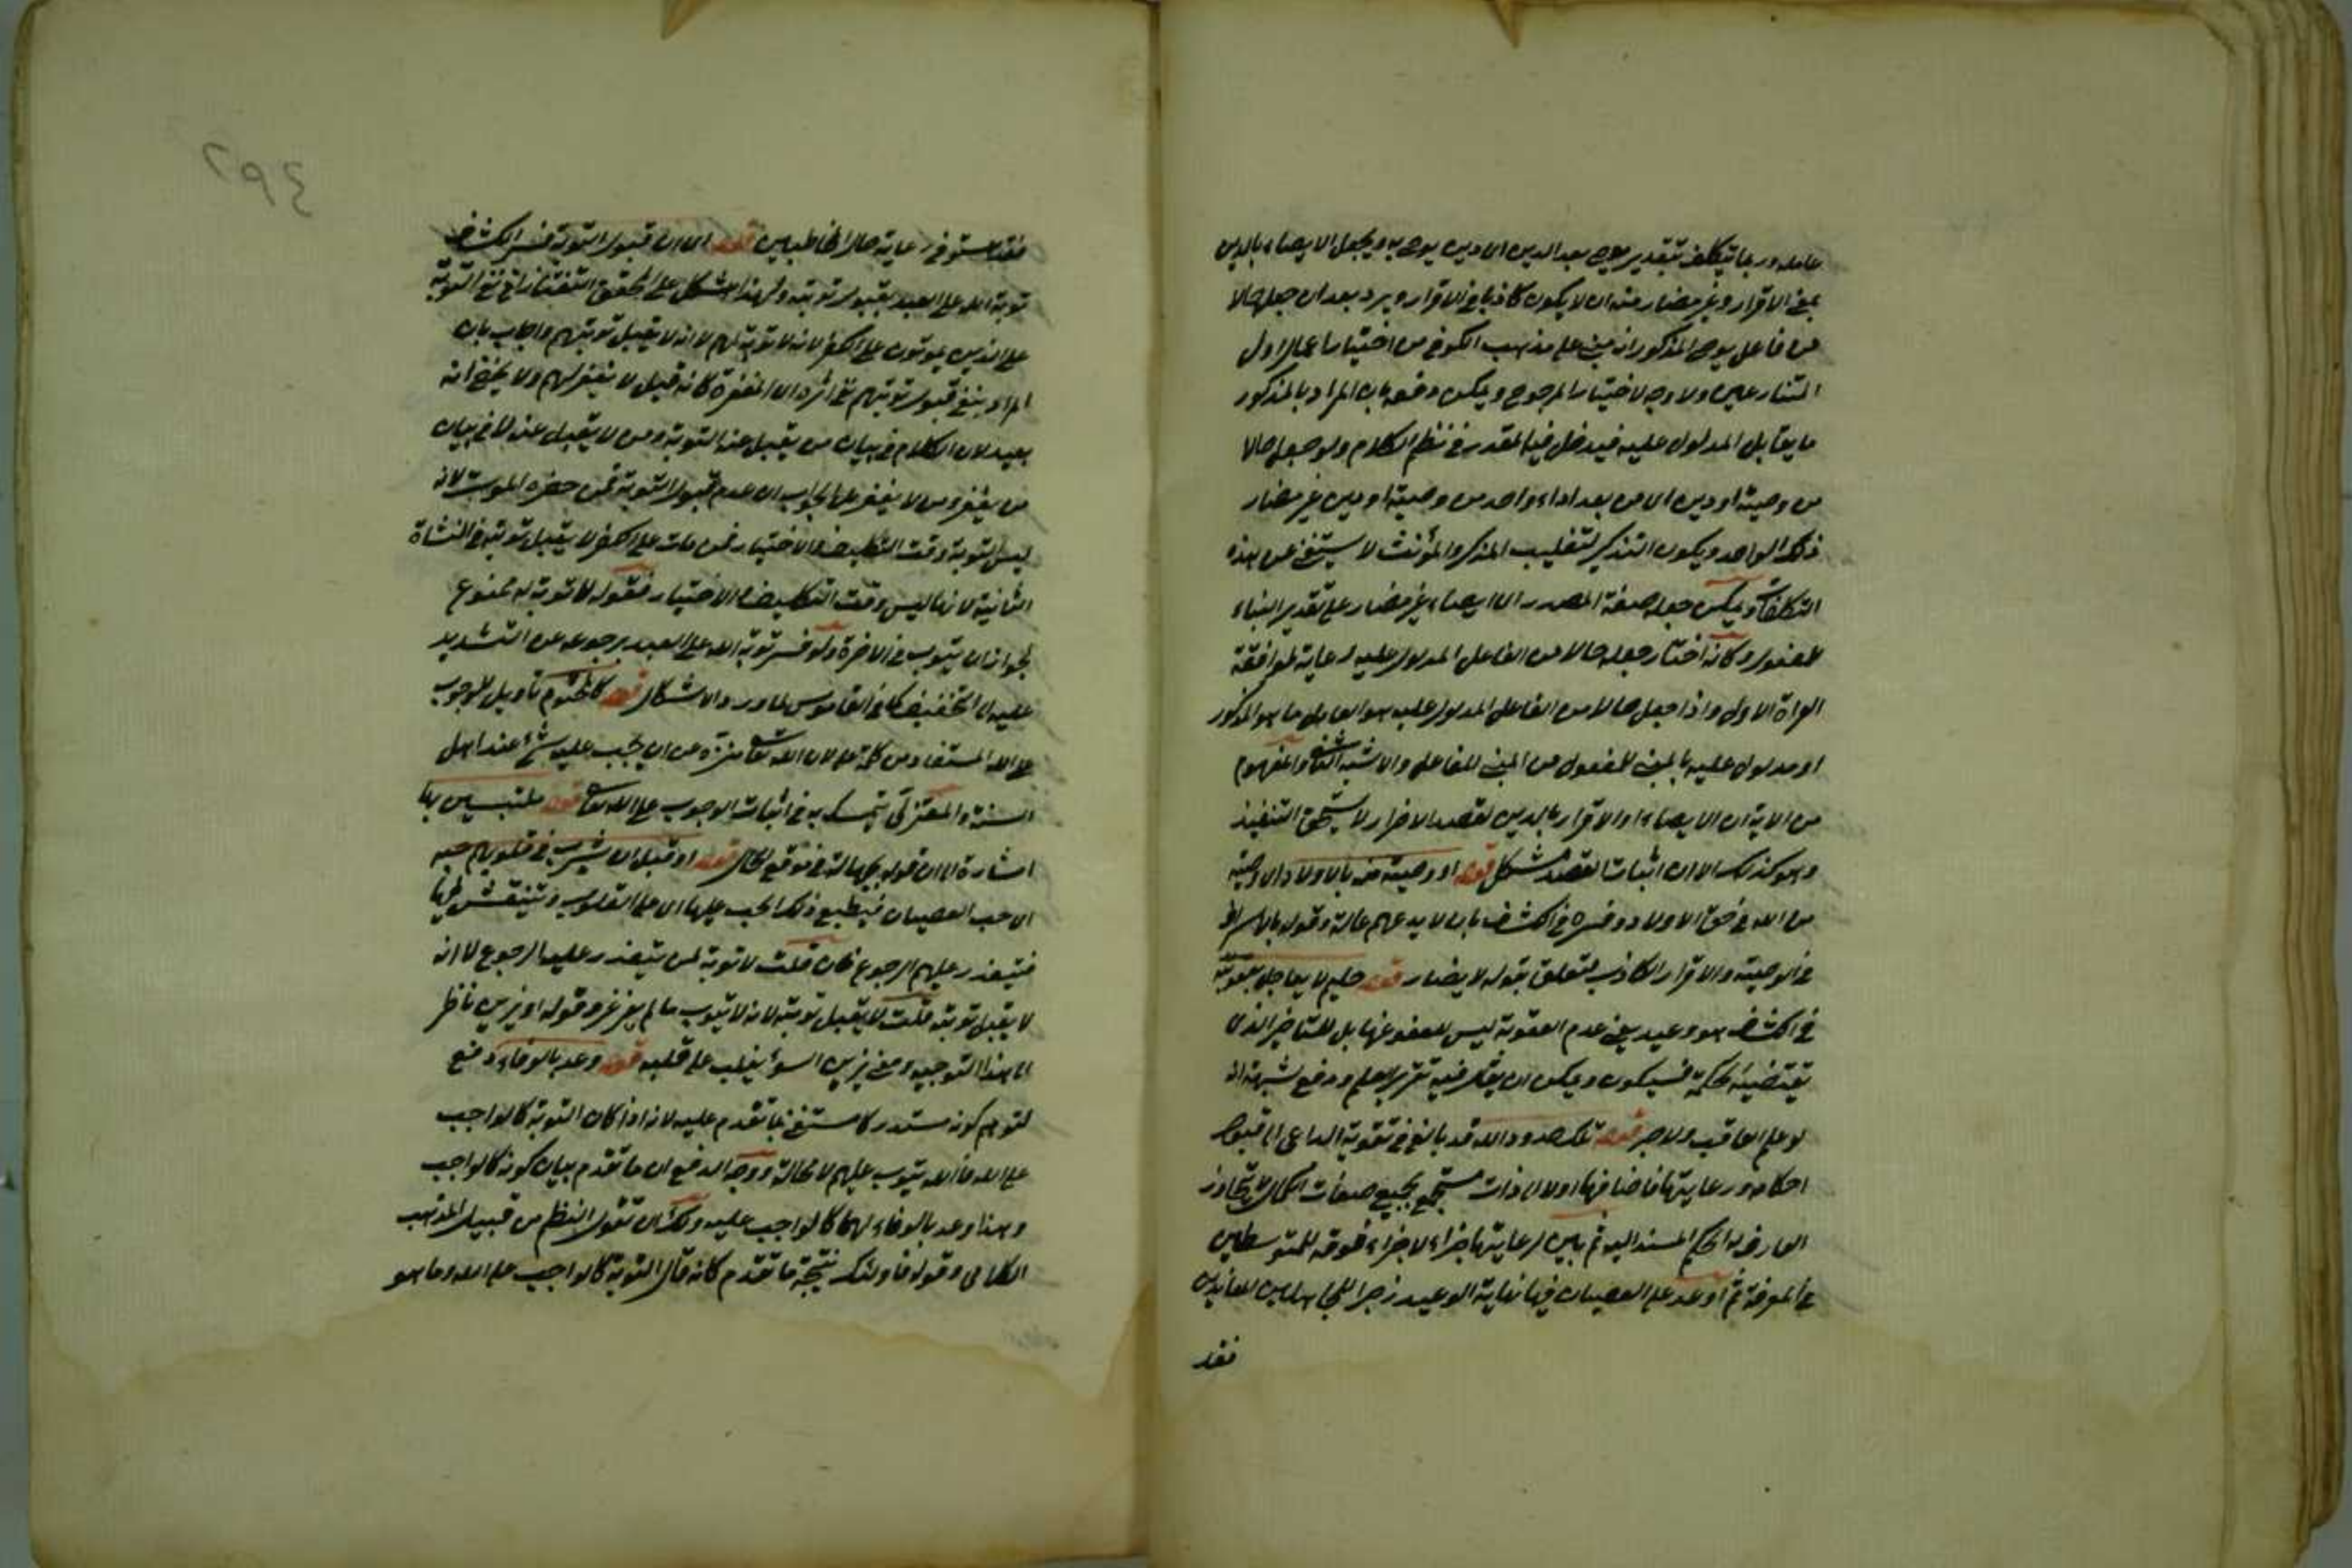 عامله وربما يتكلف بتقدير يوصى بعد الدين اى دين يوصى به ويجعل الايصاء بالدين
بمعنى الاقرار وغير مضار منه ان لا يكون كاذبا فى الاقرار ويرد بعد ان جعل حالا
من فاعل يوصى المذكور انه مبنى على مذهب الكوفى من اختيار اعمال اول
المتنازعين ولا وجه لاختيار المرجوح ويمكن دفعه بان المراد بالمذكور
ما يقابل المدلول عليه فيدخل فيه المقدر فى نظم الكلام ولو جعل حالا
من وصية او دين اى من بعد اداء واحد من وصية او دين غير مضار
ذلك الواحد ويكون التذكير لتغليب المذكر والمؤنث لاستغنى عن هذه
التكلفات ويمكن جعله صفة المصدر اى ايصاء غير مضار على تقدير البناء
للمفعول وكانه اختار جعله حالا من الفاعل المدلول عليه لرعاية لموافقة
القراة الاولى واذا جعل حالا من الفاعل المدلول عليه هو العامل ما هو المذكور
او مدلول عليه بالمبنى للمفعول من المبنى للفاعل والاشبه الثانى والمفهوم
من الاية ان الايصاء او الاقرار بالدين لقصد الاضرار لا يستحق التنفيذ
وهو كذلك الا ان اثبات القصد مشكل قوله او وصية منه بالاولاد اى وصية
من الله فى حق الاولاد وفسره فى الكشاف بان لا يدعهم عالة وقوله بالاسراف
فى الوصية والاقرار الكاذب متعلق بقوله لا يضار قوله حليم لا يعاجل بعقوبته
فى الكشاف هو وعيد يعنى عدم العقوبة ليس للعفو عنها بل للتاخير الذى
تقتضيه الحكمة فسيكون ويمكن ان يقال فيه تقرير العلم ودفع شبهة انه
لو علم لعاقب ولاجر قوله تلك حدود الله قد بالغ فى تقوية الداعى الى قبول
احكامه ورعايتها فاضافها اولا الى ذات مستجمع لجميع صفات الكمال لا يتجاوز
العارف به الحكم المسند اليه ثم بين لرعايتها جزاء لا جزاء فوقه للمتوسطين
فى المعرفة ثم اوعد على العصيان فيها نهاية الوعيد زجرا للجاهلين المعاندين
فقد
٢٩٤
فقد استوفى رعاية حال المخاطبين قوله اى ان قبول التوبة فسر الكشاف
توبة الله على العبد بقبول توبته ولهذا استشكل على المحقق التفتازانى نفى التوبة
على الذين يموتون على الكفر لانه لا توبة لهم لا انه لا يقبل توبتهم واجاب بان
المراد بنفى قبول توبتهم نفى اثره اى المغفرة كانه قيل لا يغفر لهم ولا يخفى انه
بعيد لان الكلام فى بيان من يقبل عنه التوبة ومن لا يقبل عنه لا فى بيان
من يغفر ومن لا يغفر على الجواب ان عدم قبول التوبة فمن حضره الموت لانه
ليس التوبة وقت التكليف والاختيار فمن مات على الكفر لا يقبل توبته فى النشاة
الثانية لانها ليس وقت التكليف والاختيار فقوله لا توبة له ممنوع
لجواز ان يتوب فى الاخرة ولو فسر توبة الله على العبد برجوعه عن التشديد
عليه الى التخفيف كما فى القاموس لما ورد الاشكال قوله كالمحتوم تاويل للوجوب
على الله المستفاد من كلمة على لان الله تعالى منزه عن ان يجب عليه شئ عند اهل
السنة والمعتزلى يتمسك به فى اثبات الوجوب على الله تعالى قوله ملتبسين بها
اشارة الى ان قوله بجهالة فى موقع الحال قوله او قبل ان يشرب فى قلوبهم حبه
اى حب العصيان فيطبع ذلك الحب عليها اى على القلوب وتنتقش بها
فيتعذر عليهم الرجوع فان قلت لا توبة لمن يتعذر عليه الرجوع لا انه
لا يقبل توبته قلت لا يقبل توبته لانه لا يتوب ما لم يغرغر وقوله او يزين ناظر
الى هذا التوجيه ومعنى يزين السوء يغلب على قلبه قوله وعد بالوفاء دفع
لتوهم كونه مستدركا مستغنى بما تقدم عليه لانه اذا كان التوبة كالواجب
على الله فالله يتوب عليهم لا محالة ووجه الدفع ان ما تقدم بيان كونه كالواجب
وهذا وعد بالوفاء لهما كالواجب عليه ولك ان تقول النظم من قبيل المذهب
الكلامى وقوله فاولئك نتيجة ما تقدم كانه قال التوبة كالواجب على الله وما هو